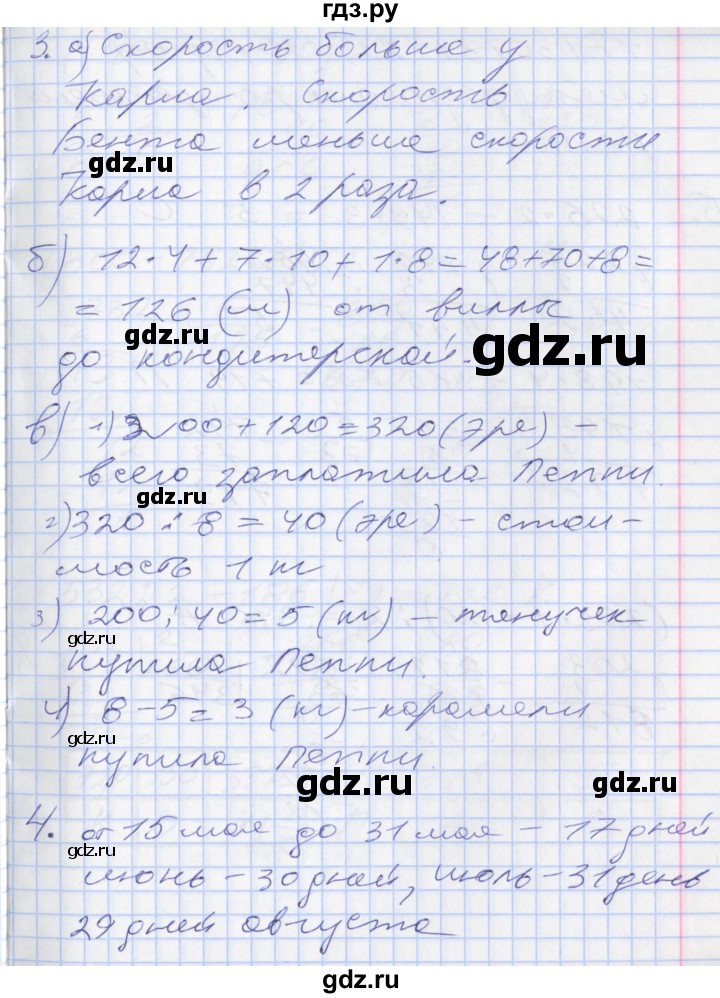 гдз.ру
3. а) Скорость больше у
Карла. Скорость
Бента меньше скорости
gdz.ru
Карла в 2 раза.
б) 12·4+7·10+1·8=48+70+8=
=126 (м) от виллы
gdz.ru
gdz.ru
до кондитерской.
в) 1) 200+120=320 (эре) –
всего заплатила Пеппи.
gdz.ru
2) 320 : 8 = 40 (эре) – стои-
мость 1 кг
3) 200 : 40 = 5 (кг) – тянучек
gdz.ru
купила Пеппи.
4) 8-5=3 (кг) – карамели
купила Пеппи.
gdz.ru
gdz.ru
4. от 15 мая до 31 мая – 17 дней
gdz.ru
июнь – 30 дней, июль – 31 день
29 дней августа
gdz.ru
gdz.ru
гдз.ру